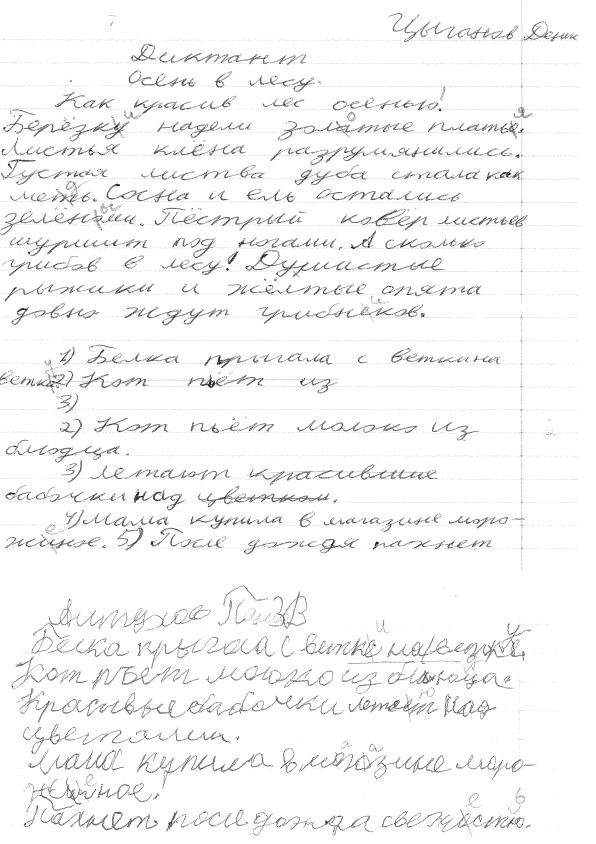 Цыганов Денис
Диктант
Осень в лесу.
Как красив лес осенью!
Берёзки надели золотые платья.
Листья клёна разрумянились.
Густая листва дуба стала как
медь. Сосна и ель остались
зелёными. Пёстрый ковёр листьев
шуршит под ногами. А сколько
грибов в лесу! Душистые
рыжики и жёлтые опята
довно ждут грибников.
1) Белка прыгала с ветки на
ветку. 2) Кот пьёт из
3)
2) Кот пьёт молоко из
блюдца.
3) летают красившие
бабочки над цветком.
4) Мама купила в магазине моро-
женое. 5) После дождя пахнет
3В
Белка прыгаа с ветки на ветку.
Кот пъёт моюко из
Красивые бабочки летают над
цветами.
Мама купила в магазине моро-
женое!
Пахнет после дождя свежестью.